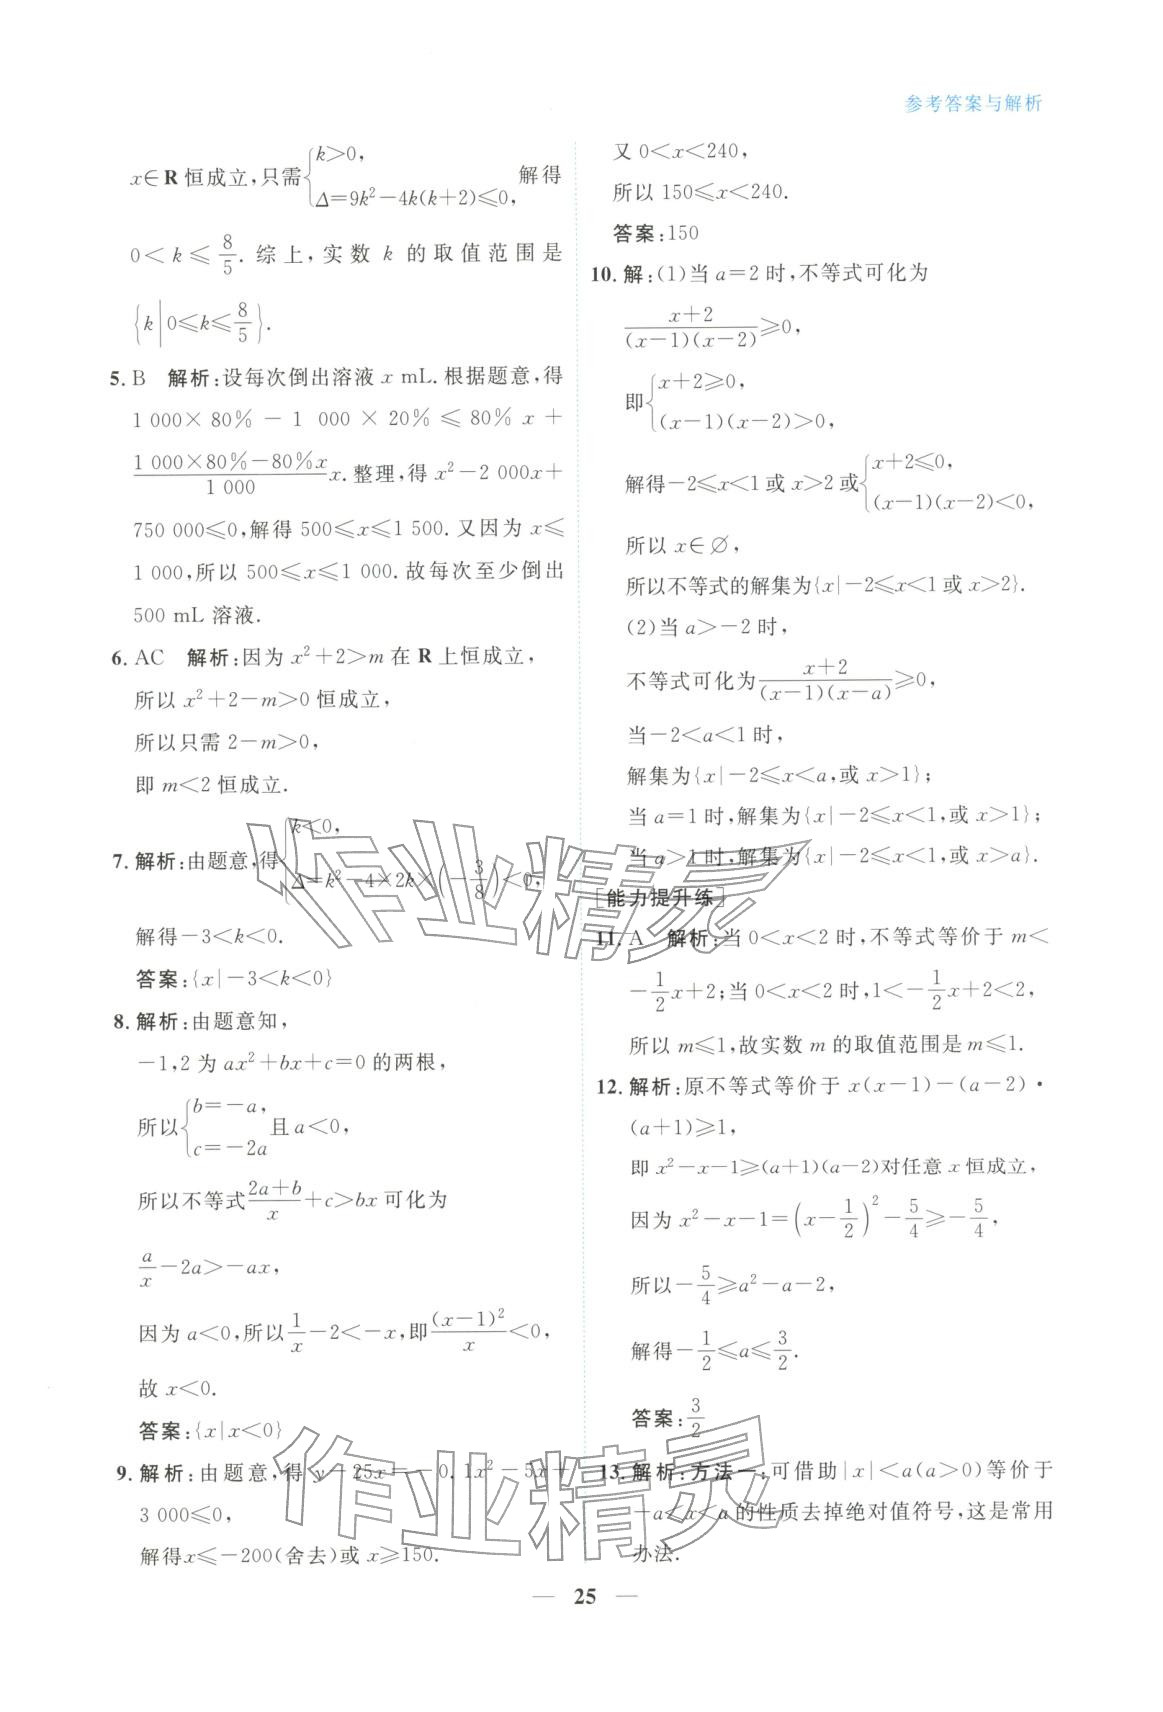 参考答案与解析
x∈R 恒成立,只需{k>0, Δ=9k²-4k(k+2)≤0, 解得
0<k≤8/5. 综上,实数 k 的取值范围是
{k|0≤k≤8/5}.
5. B 解析:设每次倒出溶液 x mL. 根据题意,得
1 000×80%-1 000×20%≤80% x+
(1 000×80%-80%x)/1 000 x. 整理,得 x²-2 000x+
750 000≤0,解得 500≤x≤1 500. 又因为 x≤
1 000,所以 500≤x≤1 000. 故每次至少倒出
500 mL 溶液.
6. AC 解析:因为 x²+2>m 在 R 上恒成立,
所以 x²+2-m>0 恒成立,
所以只需 2-m>0,
即 m<2 恒成立.
7. 解析:由题意,得{k<0, Δ=k²-4×2k×(-3/8)<0,
解得-3<k<0.
答案:{x|-3<k<0}
8. 解析:由题意知,
-1,2 为 ax²+bx+c=0 的两根,
所以{b=-a, c=-2a 且 a<0,
所以不等式(2a+b)/x+c>bx 可化为
a/x-2a>-ax,
因为 a<0,所以1/x-2<-x,即(x-1)²/x<0,
故 x<0.
答案:{x|x<0}
9. 解析:由题意,得 y-25x=-0.1x²-5x+
3 000≤0,
解得x≤-200(舍去)或 x≥150.
又 0<x<240,
所以 150≤x<240.
答案:150
10. 解:(1)当 a=2 时,不等式可化为
(x+2)/((x-1)(x-2))≥0,
即{x+2≥0, (x-1)(x-2)>0,
解得-2≤x<1 或 x>2 或{x+2≤0, (x-1)(x-2)<0,
所以 x∈∅,
所以不等式的解集为{x|-2≤x<1 或 x>2}.
(2)当 a>-2 时,
不等式可化为(x+2)/((x-1)(x-a))≥0,
当-2<a<1 时,
解集为{x|-2≤x<a,或 x>1};
当 a=1 时,解集为{x|-2≤x<1,或 x>1};
当 a>1 时,解集为{x|-2≤x<1,或 x>a}.
[能力提升练]
11. A 解析:当 0<x<2 时,不等式等价于 m<
-1/2x+2;当 0<x<2 时,1<-1/2x+2<2,
所以 m≤1,故实数 m 的取值范围是 m≤1.
12. 解析:原不等式等价于 x(x-1)-(a-2)·
(a+1)≥1,
即 x²-x-1≥(a+1)(a-2)对任意 x 恒成立,
因为 x²-x-1=(x-1/2)²-5/4≥-5/4,
所以-5/4≥a²-a-2,
解得-1/2≤a≤3/2.
答案:3/2
13. 解析:方法一:可借助|x|<a(a>0)等价于
-a<x<a 的性质去掉绝对值符号,这是常用
办法.
作业精灵
作业精灵
— 25 —